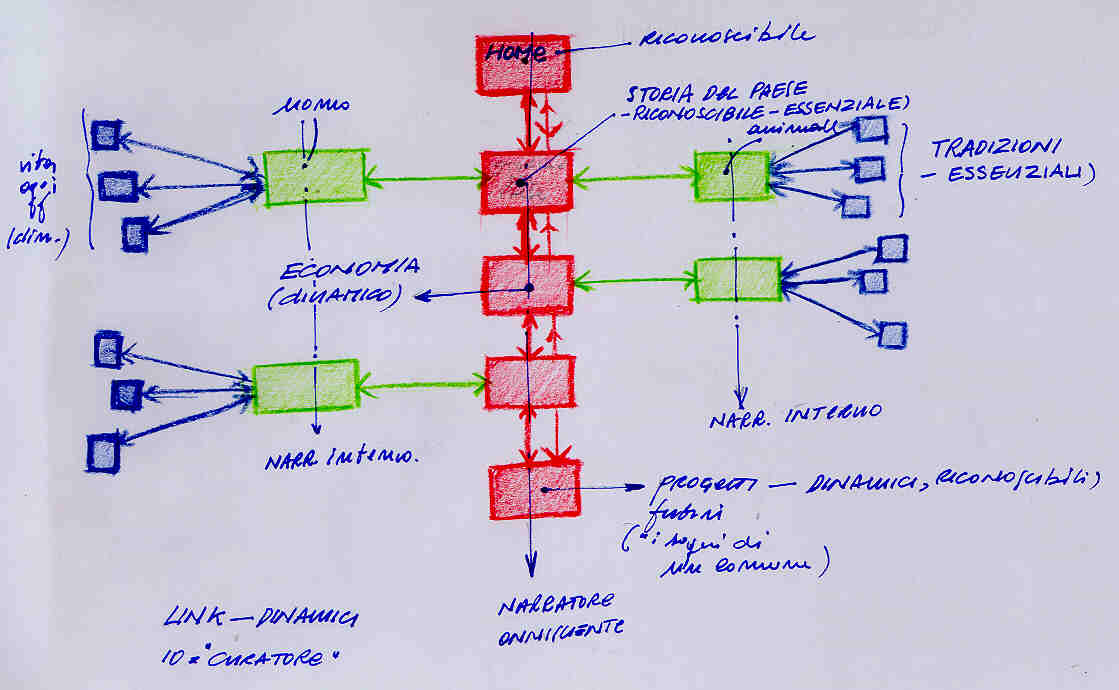 HOME
RICONOSCIBILE
STORIA DEL PAESE
-RICONOSCIBILE-ESSENZIALE)
animale
uomo
vita
oggi
(din.)
TRADIZIONI
- ESSENZIALI)
ECONOMIA
(DINAMICO)
NARR. INTERNO
NARR. interno.
PROGETTI — DINAMICI, RICONOSCIBILI)
futuri
("i sogni di
un comune)
NARRATORE
ONNISCIENTE
LINK — DINAMICI
IO = "CURATORE"